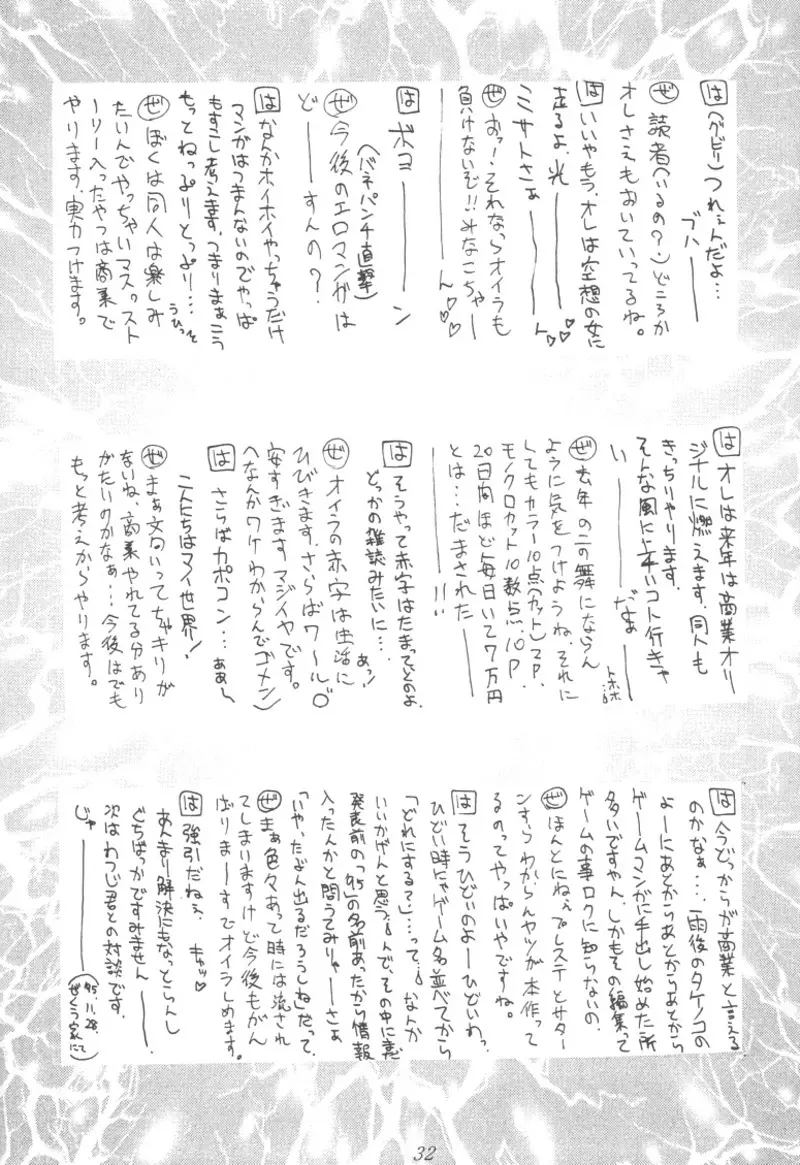 は (グビリ)つれぇんだよ…
ブハ――
ぜ 読者(いるの?)どころか
オレさえもおいていってるね。
は いいやもう、オレは空想の女に
走るよ、光――
ミサトさぁ――ん♡♡
ぜ おっ!それならオイラも
負けないぞ!!みなこちゃー
――ん♡♡
は ボコ――ン
(バネパンチ直撃)
ぜ 今後のエロマンガは
ど――すんの?
は なんかホイホイやっちゃうだけ
マンガはつまんないのでやっぱ
もすこし考えます。つまりまぁこう
もっとねっぷりとっぷり…
うひっっと
ぜ ぼくは同人は楽しみ
たいんでやっちゃいマス。スト
ーリー入ったやつは商業で
やります、実力つけます。
は オレは来年は商業オリ
ジナルに燃えます、同人も
きっちりやります。
そんな風にに本いコト行きゃ
い――だよ――
トホホ…
ぜ 去年の二の舞にならん
ように気をつけようね、それに
してもカラー10点(カット)2P、
モノクロカット10数点、10P
20日間ほど毎日いて7万円
とは…だまされた――
――!!
は そうやって赤字はたまってくのよ、
どっかの雑誌みたいに…
あっ!
ぜ オイラの赤字は生活に
ひびきます、さらばワールド
安すぎます マジイヤです。
(なんかワケわからんでゴメン)
は さらばカポコン… ああ〜
こんにちはマイ世界!
ぜ まぁ文句いってちゃキリが
ないね、商業やれてる分あり
がたいのかなぁ…今後はでも
もっと考えからやります。
は 今どっからが商業と言える
のかなぁ…、雨後のタケノコの
よーにあとからあとからあとから
ゲームコンガに手出し始めた所
多いですやん、しかもその編集って
ゲームの事ロクに知らないの、
ぜ ほんとにねぇ プレステとサター
ンすらわからんヤツが本作って
るのってやっぱいやですね。
は そうひどいのよーひどいわっ
ひどい時にゃゲーム名並べてから
「どれにする?」…って、なんか
いいかげんと思う。んで、その中に意
発表前の「95」の名前あったから情報
入ったんかと問うてみりゃーさぁ
「いや、たぶん出るだろうしね」だって、
ぜ まぁ色々あって時には流され
てしまりますけど今後もがん
ばりまーすでオイラしめます。
は 強引だねぇ、 キャッ♡
あんまり解決にもなっとらんし
ぐちばっかですみません――。
次はわつじ君との対談です。
じゃ――
('95.11.28.
ぜくう家にて)
32